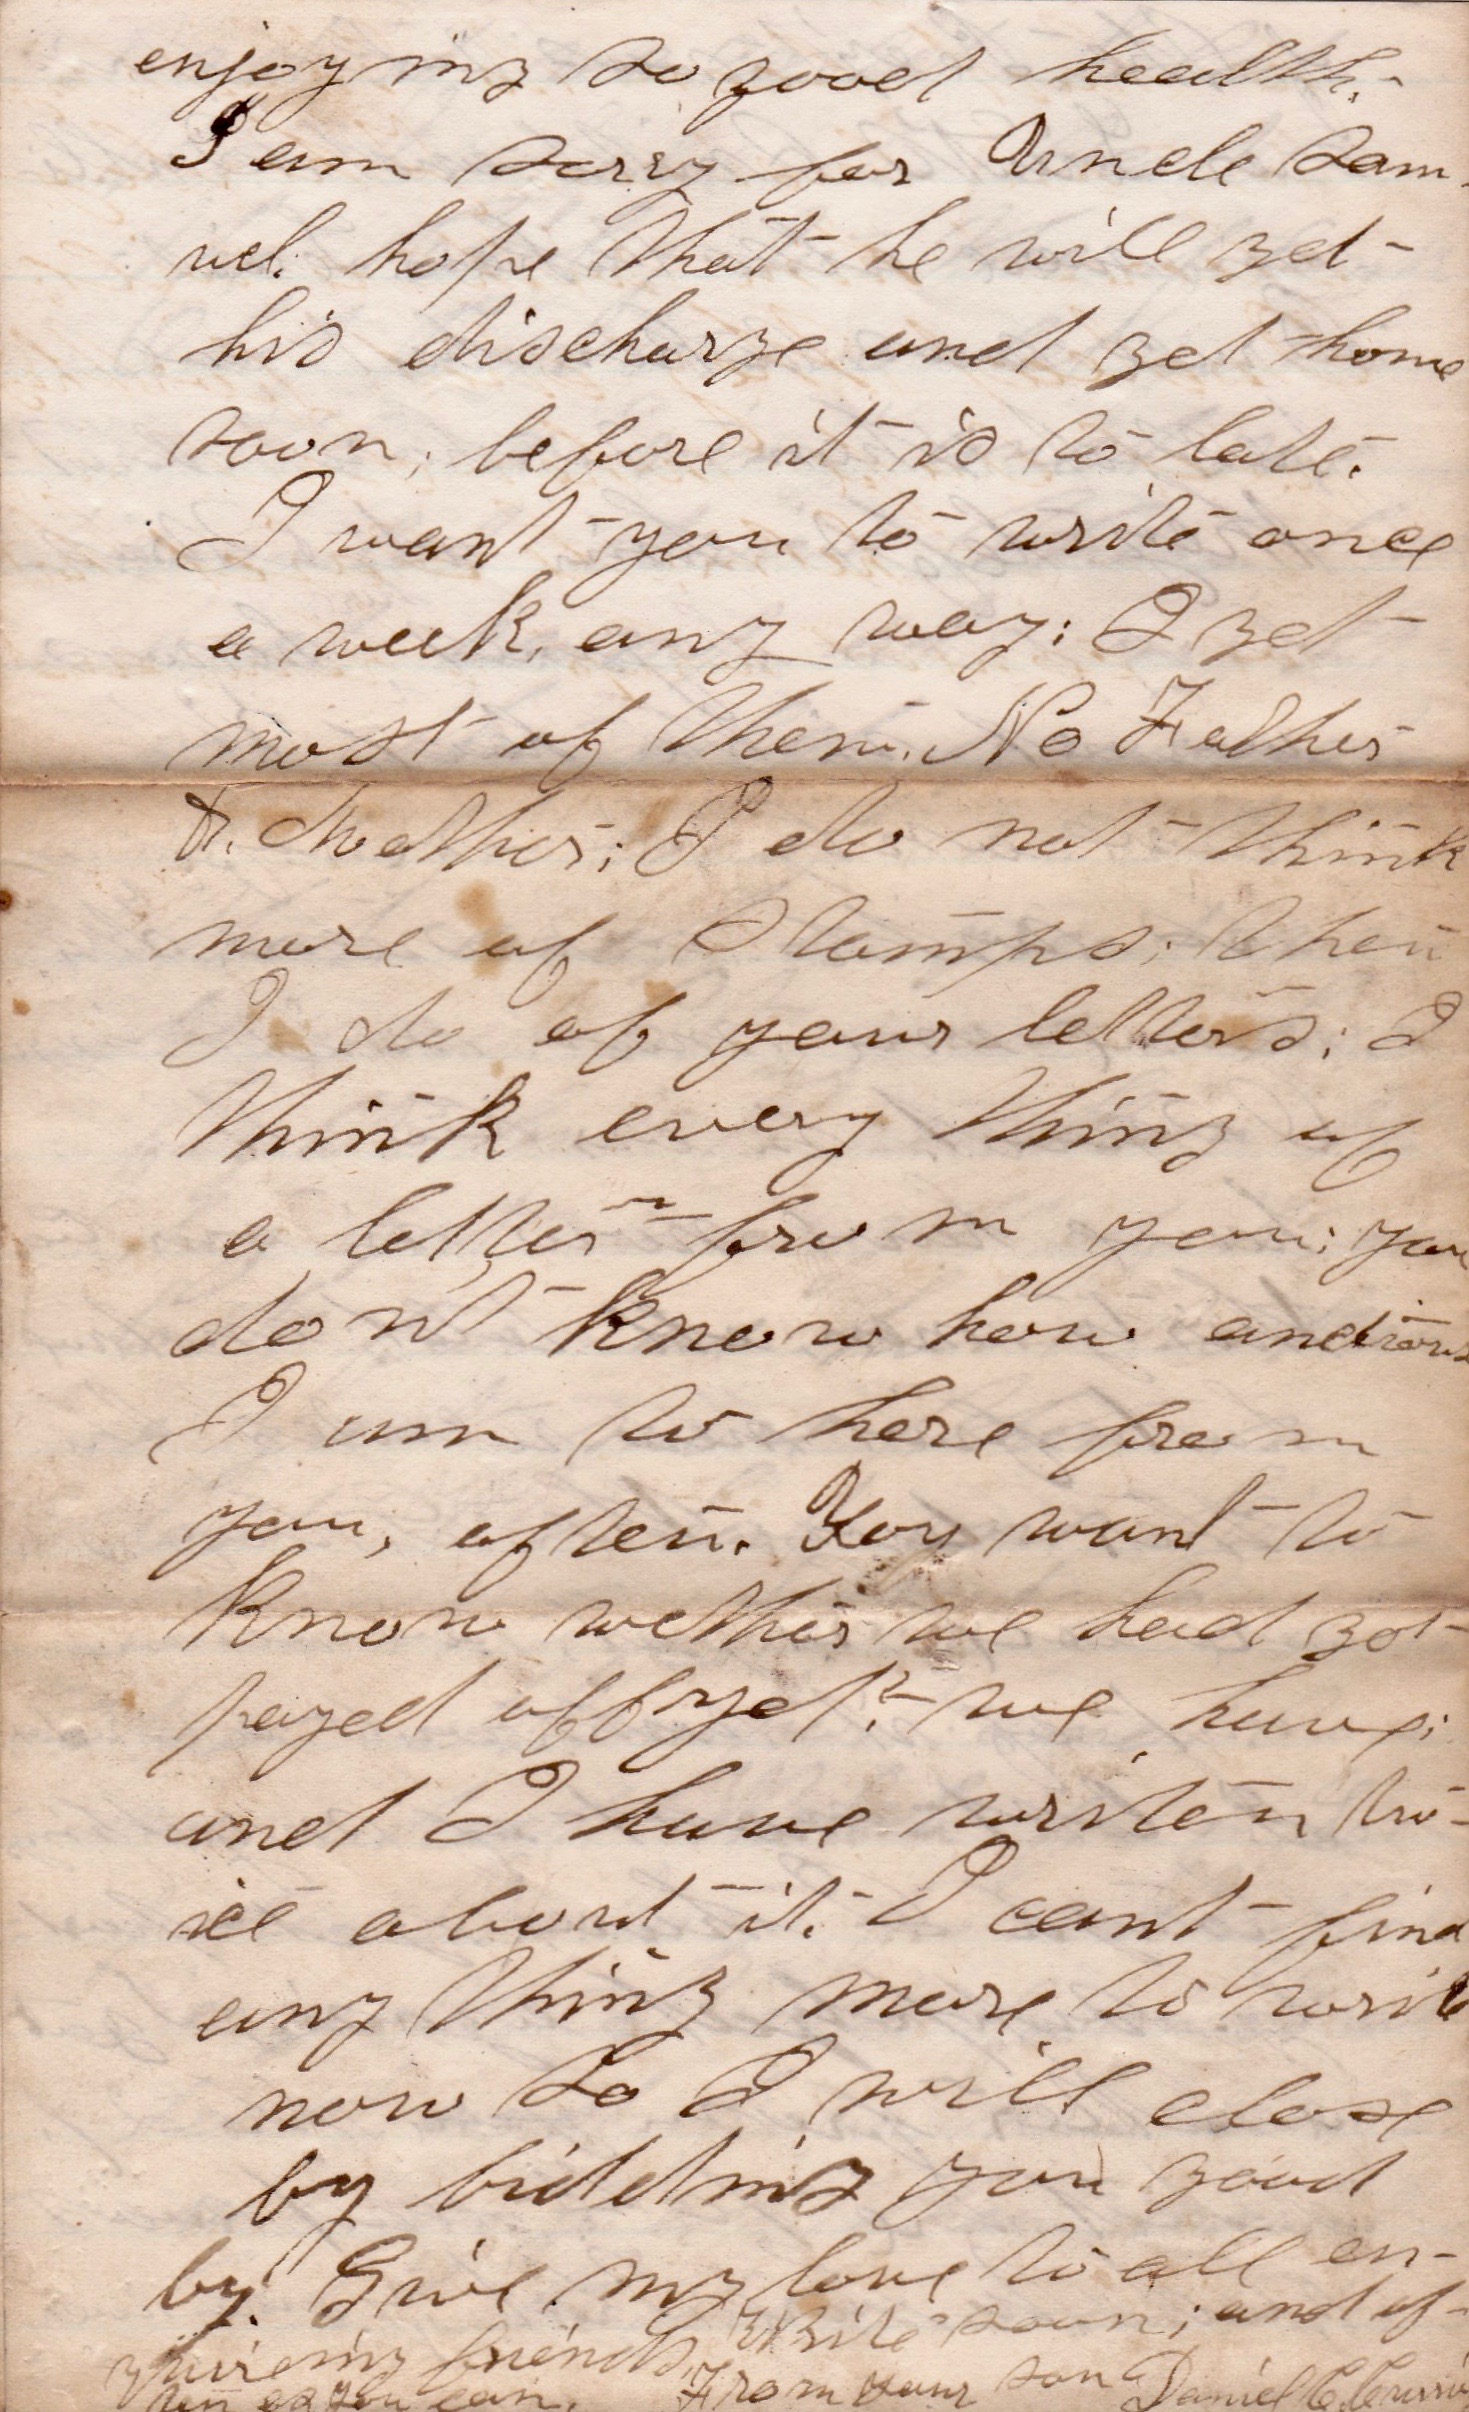 enjoying so good health.
I am sorry for Uncle Sam-
uel. hope that he will get
his discharge and get home
soon; before it is to late.
I want you to write once
a week, any way; I get
most of them. No Father
& Mother; I do not think
more of Stamps; then
I do of your letters; I
think every thing of
a letter from you; you
dont know how anctious
I am to here from
you, often. You want to
know wether we had got
payed off yet? we have;
and I have writen twi-
ice about it. I cant find
any thing more to write
now So I will close
by bidding you good
by. Give my love to all en-
quireing friends, Write soon; and of-
ten as you can. From your son Daniel